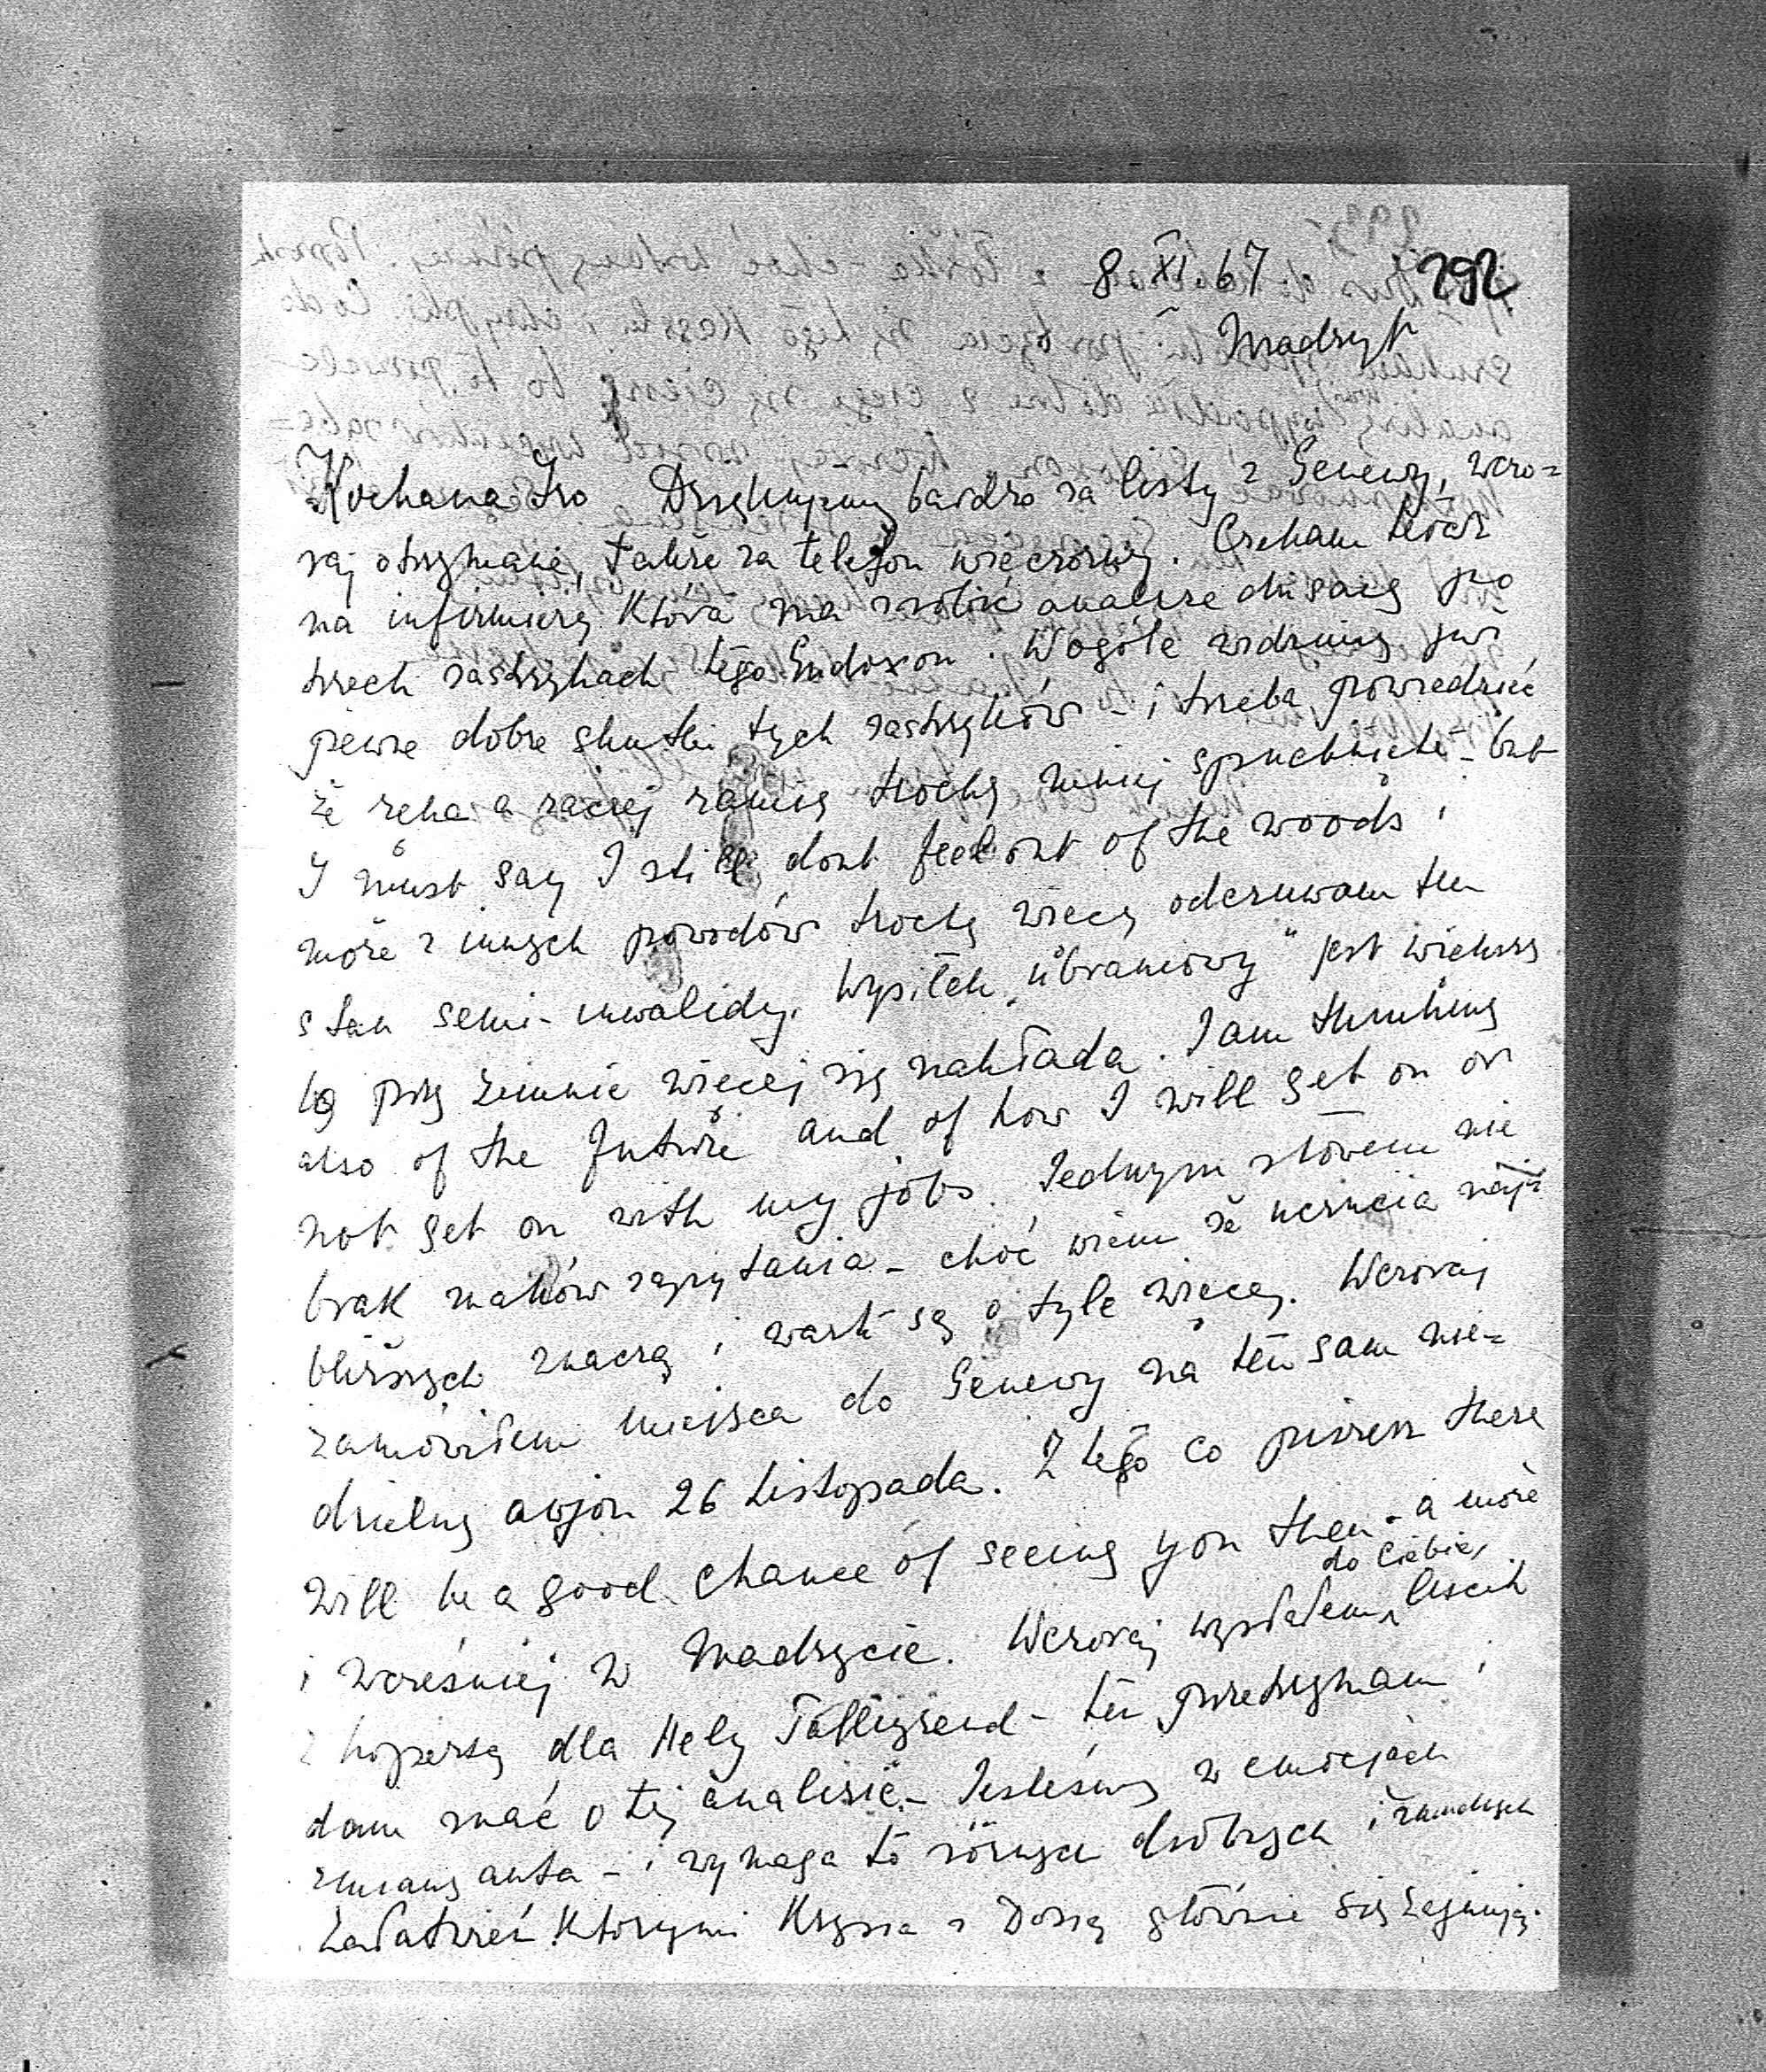 8 XI 67 292
Madryt
Kochana Izo Dziękujemy bardzo za listy z Genewy, wczo=
raj otrzymane, także za telefon wieczorny. Czekam teraz
na infirmierę która ma zrobić analizę dzisiaj po
trzech zastrzykach tego Endoxon. Wogóle widzimy już
pewne dobre skutki tych zastrzyków - i trzeba powiedzieć
że ręka a raczej ramię trochę mniej spuchnięte - but
I must say I still dont feel out of the woods i
może z innych powodów trochę więcej odczuwam ten
stan semi-inwalidy. Wysiłek „ubraniowy" jest większy
bo przy zimnie więcej się nakłada. I am thinking
also of the future and of how I will get on or
not get on with my jobs. Jednym słowem nie
brak znaków zapytania - choć wiem że uczucia naj=
bliższych znaczą i warte są o tyle więcej. Wczoraj
zamówiłem miejsca do Genewy na ten sam nie=
dzielny avjon 26 Listopada. Z tego co piszesz there
will be a good chance of seeing you then - a może
i wcześniej w Madrycie. Wczoraj wysłałem do Ciebie, liścik
z kopertą dla Hely Talleyrand - ten przetrzymam i
dam znać o tej analizie. - Jesteśmy w emocjach
zmiany auta - i wymaga to różnych drobnych i żmudnych
załatwień którymi Krysia z Dosią głównie się zajmują.